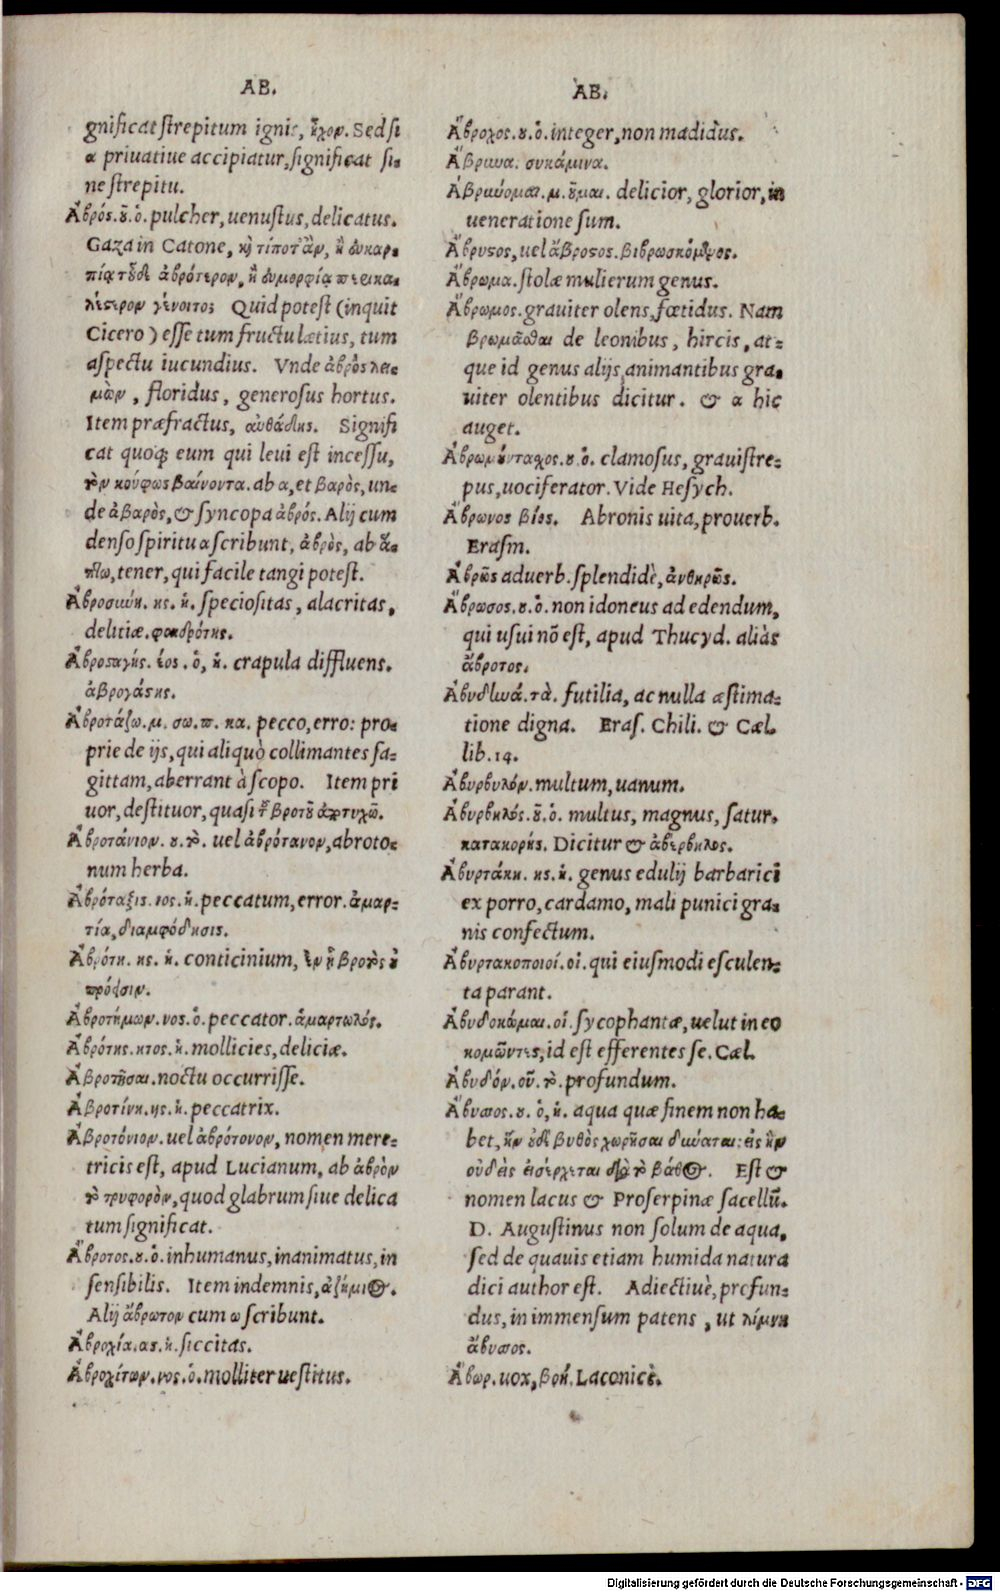 AB.
gnificat strepitum ignis, ἦχον. Sed si
α priuatiue accipiatur, significat si-
ne strepitu.
Ἁβρός. οῦ. ὁ. pulcher, uenustus, delicatus.
Gaza in Catone, καὶ τί ποτ' ἂν, ἢ εὐκαρ-
πίᾳ τοῦδε ἁβρότερον, ἢ εὐμορφίᾳ περικα-
λέςερον γένοιτο; Quid potest (inquit
Cicero) esse tum fructu lætius, tum
aspectu iucundius. Vnde ἁβρὸς λει-
μὼν, floridus, generosus hortus.
Item præfractus, αὐθάδης. Signifi
cat quoq; eum qui leui est incessu,
τὸν κούφως βαίνοντα. ab α, et βαρὸς, un-
de ἀβαρὸς, & syncopa ἀβρός. Alij cum
denso spiritu α scribunt, ἁβρὸς, ab ἅ-
πτω, tener, qui facile tangi potest.
Ἁβροσύνη. ης. ἡ. speciositas, alacritas,
delitiæ. φαιδρότης.
Ἁβροςαγής. έος. ὁ, ἡ. crapula diffluens.
ἁβρογάςης.
Ἀβροτάζω. μ. σω. π. κα. pecco, erro: pro-
prie de ijs, qui aliquò collimantes sa-
gittam, aberrant à scopo. Item pri
uor, destituor, quasi τοῦ βροτοῦ ἀποτυχῶ.
Ἀβροτάνιον. ου. τὸ. uel ἀβρότανον, abroto-
num herba.
Ἀβρόταξις. ιος. ἡ. peccatum, error. ἁμαρ-
τία, διαμφόδησις.
Ἀβρότη. ης. ἡ. conticinium, ἐν ᾗ βροτὸς οὐ
πρόεισιν.
Ἀβροτήμων. νος. ὁ. peccator. ἁμαρτωλός.
Ἁβρότης. ητος. ἡ. mollicies, deliciæ.
Ἀβροτῆσαι. noctu occurrisse.
Ἀβροτίνη. ης. ἡ. peccatrix.
Ἁβροτόνιον. uel ἁβρότονον, nomen mere-
tricis est, apud Lucianum, ab ἁβρὸν
τὸ τρυφορὸν, quod glabrum siue delica
tum significat.
Ἄβροτος. ου. ὁ. inhumanus, inanimatus, in
sensibilis. Item indemnis, ἀζήμιος.
Alij ἄβρωτον cum ω scribunt.
Ἀβροχία. ας. ἡ. siccitas.
Ἁβροχίτων. νος. ὁ. molliter uestitus.
AB.
Ἄβροχος. ου. ὁ. integer, non madidus.
Ἄβρυνα. συκάμινα.
Ἁβρύνομαι. μ. οῦμαι. delicior, glorior, in
ueneratione sum.
Ἄβρυςος, uel ἄβροςος. βιβρωσκόμενος.
Ἄβρωμα. stolæ mulierum genus.
Ἄβρωμος. grauiter olens, fœtidus. Nam
βρωμᾶσθαι de leonibus, hircis, at-
que id genus alijs animantibus gra-
uiter olentibus dicitur. & α hic
auget.
Ἀβρωμόνταχος. ου. ὁ. clamosus, grauistre-
pus, uociferator. Vide Hesych.
Ἄβρωνος βίος. Abronis uita, prouerb.
Erasm.
Ἁβρῶς aduerb. splendidè, ἀνθηρῶς.
Ἄβρωσος. ου. ὁ. non idoneus ad edendum,
qui usui nõ est, apud Thucyd. aliàs
ἄβροτος.
Ἀβυδηνά. τὰ. futilia, ac nulla æstima-
tione digna. Eras. Chili. & Cæl.
lib. 14.
Ἀβυρβυλόν. multum, uanum.
Ἀβυρβηλός. οῦ. ὁ. multus, magnus, satur.
κατακορής. Dicitur & ἀβερβηλος.
Ἀβυρτάκη. ης. ἡ. genus edulij barbarici
ex porro, cardamo, mali punici gra-
nis confectum.
Ἀβυρτακοποιοί. οἱ. qui eiusmodi esculen-
ta parant.
Ἀβυδοκῶμαι. οἱ. sycophantæ, uelut in eo
κομῶντες, id est efferentes se. Cæl.
Ἀβυδόν. οῦ. τὸ. profundum.
Ἄβυσσος. ου. ὁ, ἡ. aqua quæ finem non ha-
bet, ἣν οὐδὲ βυθὸς χωρῆσαι δύναται: εἰς ἣν
οὐδεὶς εἰσέρχεται διὰ τὸ βάθος. Est &
nomen lacus & Proserpinæ sacellũ.
D. Augustinus non solum de aqua,
sed de quauis etiam humida natura
dici author est. Adiectiuè, profun-
dus, in immensum patens, ut λίμνη
ἄβυσσος.
Ἄβωρ. uox, βοή. Laconicè.
Digitalisierung gefördert durch die Deutsche Forschungsgemeinschaft - DFG